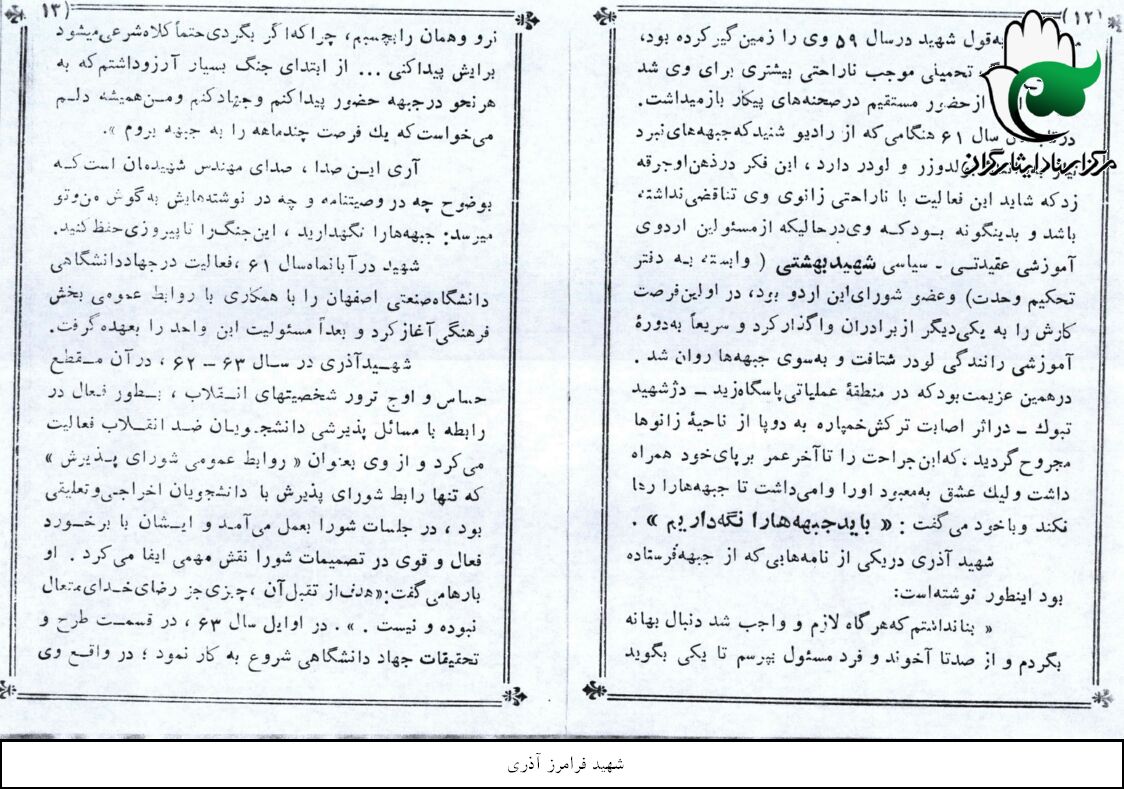 (۱۲)
به‌قول شهید درسال ۵۹ وی را زمین گیر کرده بود،
تحمیلی موجب ناراحتی بیشتری برای وی شد
ازحضور مستقیم درصحنه‌های پیکار بازمیداشت.
سال ۶۱ هنگامی که از رادیو شنید که جبهه‌های نبرد
لدوزر و لودر دارد ، این فکر درذهن اوجرقه
زدکه شاید این فعالیت با ناراحتی زانوی وی تناقضی نداشته،
باشد و بدینگونه بودکه وی درحالیکه ازمسئولین اردوی
آموزشی عقیدتی ـ سیاسی شهیدبهشتی ( وابسته به دفتر
تحکیم وحدت) وعضو شورای این اردو بود، در اولین فرصت
کارش را به یکی دیگر از برادران واگذار کرد و سریعاً به‌دورهٔ
آموزشی رانندگی لودر شتافت و به‌سوی جبهه‌ها روان شد .
درهمین عزیمت بودکه در منطقهٔ عملیاتی پاسگاه‌زید ـ دژشهید
تبوك ـ دراثر اصابت ترکش خمپاره به دوپا از ناحیهٔ زانوها
مجروح گردید ،که‌این جراحت را تاآخرعمر برپای خود همراه
داشت ولیك عشق به‌معبود اورا وامی‌داشت تا جبهه‌هارا رها
نکند وباخود می گفت : « بایدجبهه‌هارا نگه‌داریم » .
شهید آذری دریکی از نامه‌هایی که از جبهه‌فرستاده
بود اینطور نوشته‌است:
« بنانداشتم که هرگاه لازم و واجب شد دنبال بهانه
بگردم و از صدتا آخوند و فرد مسئول بپرسم تا یکی بگوید
(۱۳
نرو وهمان رابچسبم، چراکه‌اگر بگردی حتماً کلاه‌شرعی میشود
برایش پیداکنی ... از ابتدای جنگ بسیار آرزوداشتم که به
هرنحو درجبهه حضور پیداکنم وجهادکنم ومن‌همیشه دلم
می‌خواست که یك فرصت چندماهه را به جبهه بروم ».
آری این صدا ، صدای مهندس شهیدمان است که
بوضوح چه در وصیتنامه و چه در نوشته‌هایش به گوش من‌وتو
میرسد: جبهه‌هارا نگهدارید ، این جنگ را تاپیروزی حفظ کنید.
شهید درآبانماه‌سال ۶۱ ،فعالیت درجهاددانشگاهی
دانشگاه‌صنعتی اصفهان را با همکاری با روابط عمومی بخش
فرهنگی آغاز کرد و بعداً مسئولیت این واحد را بعهده گرفت.
شهیدآذری در سال ۶۳ ـ ۶۲ ، درآن مقطع
حساس و اوج ترور شخصیتهای انقلاب ، بطور فعال در
رابطه با مسائل پذیرشی دانشجویان ضد انقلاب فعالیت
می‌کرد و از وی بعنوان « روابط عمومی شورای پذیرش »
که تنها رابط شورای پذیرش با دانشجویان اخراجی وتعلیقی
بود ، در جلسات شورا بعمل می‌آمد و ایشان با برخورد
فعال و قوی در تصمیمات شورا نقش مهمی ایفا می‌کرد . او
بارهامی گفت:«هدف‌از تقبل آن ، چیزی جز رضای خدای متعال
نبوده و نیست . ». در اوایل سال ۶۳ ، در قسمت طرح و
تحقیقات جهاد دانشگاهی شروع به کار نمود ؛ در واقع وی
مرکز اسناد ایثارگران
شهید فرامرز آذری